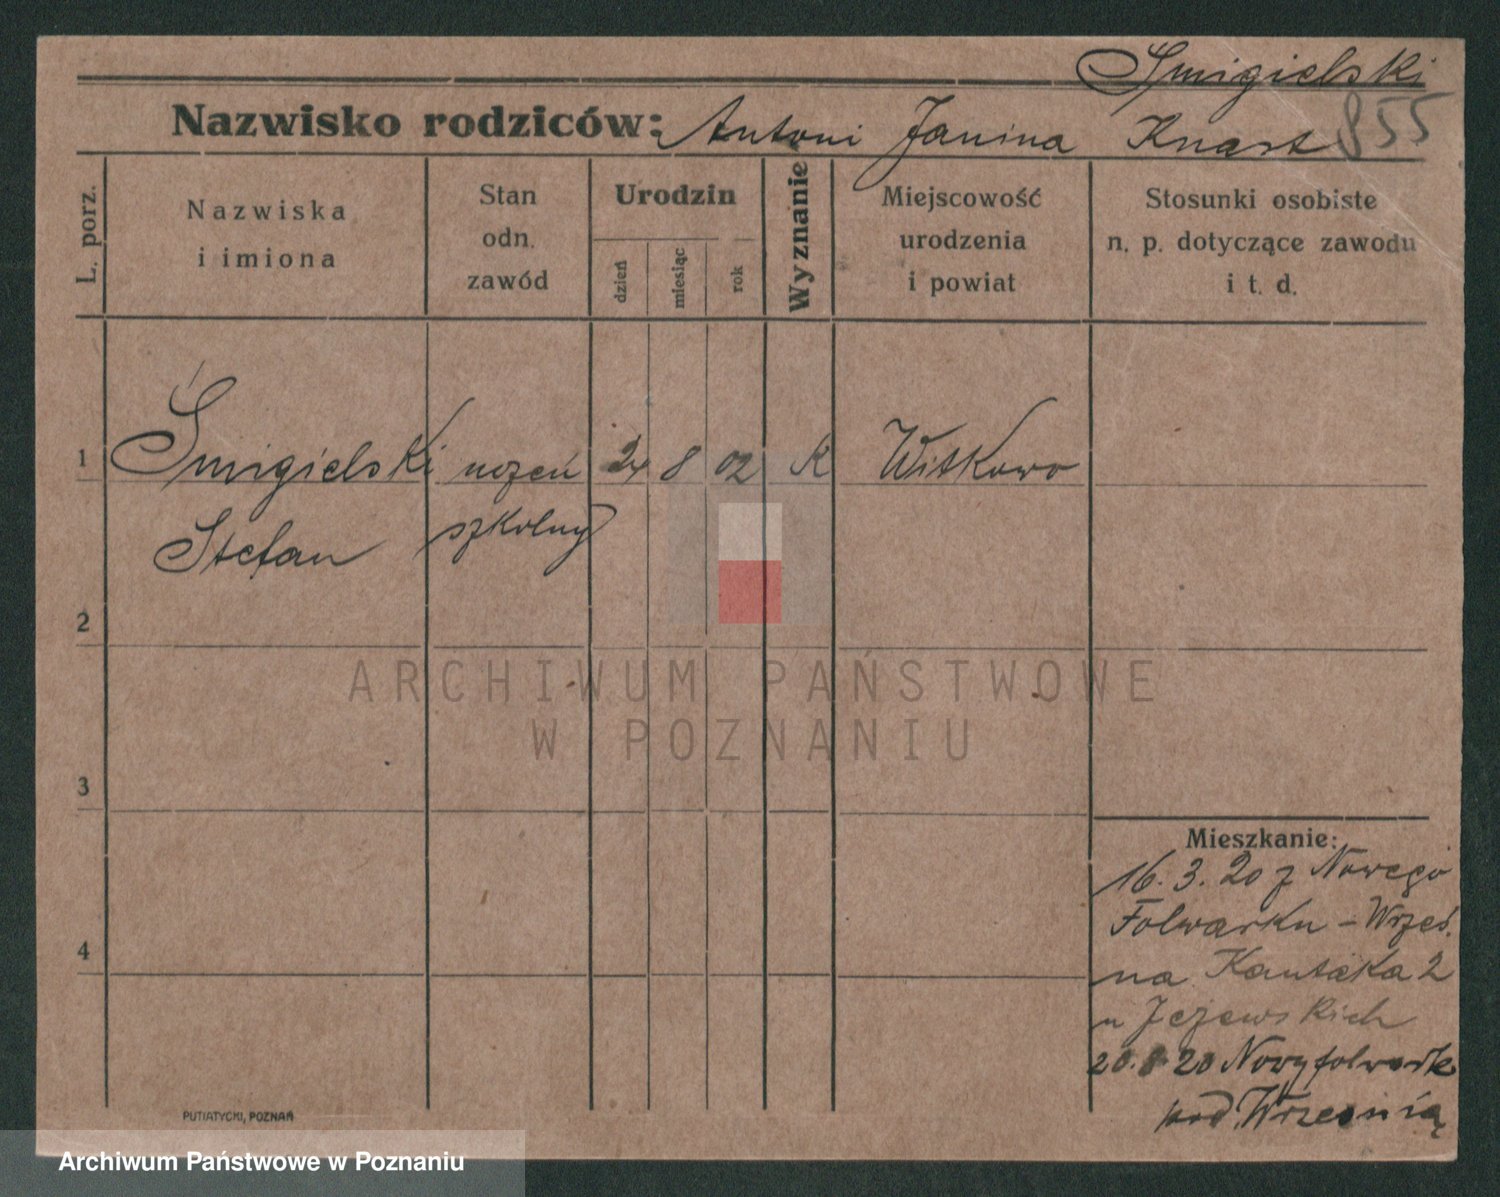 Śmigielski
Nazwisko rodziców: Antoni Janina Knast 855
L. porz.
Nazwiska
i imiona
Stan
odn.
zawód
Urodzin
dzień
miesiąc
rok
Wyznanie
Miejscowość
urodzenia
i powiat
Stosunki osobiste
n. p. dotyczące zawodu
i t. d.
1 Śmigielski uczeń 24 8 02 K Witkowo
Stefan szkolny
2
3
4
ARCHIWUM PAŃSTWOWE
W POZNANIU
Mieszkanie:
16.3.20 z Nowego
Folwarku - Wrześ.
na Kantaka 2
u Jeżewskich
20. 20 Nowyfolwark
pod Wrześnią
PUTIATYCKI, POZNAŃ
Archiwum Państwowe w Poznaniu